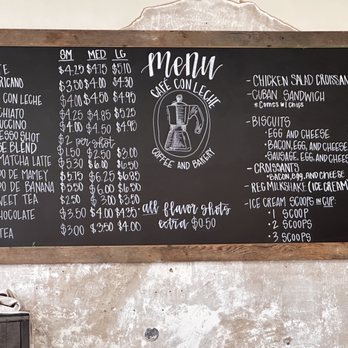 SM MED LG
TE $4.25 $4.75 $5.10
RICANO $3.50 $4.00 $4.30
CON LECHE $4.00 $4.50 $4.95
CHIATO $4.25 $4.85 $5.25
UCCINO $4.00 $4.50 $4.95
ESSO SHOT $2 per shot
SE BLEND $1.50 $2.50 $3.00
MATCHA LATTE $5.30 $5.50 $6.50
DO DE MAMEY $5.75 $6.25 $6.85
DO DE BANANA $5.50 $6.00 $6.50
WEET TEA $2.50 $3.00 $3.50
HOCOLATE $3.50 $4.00 $4.35
TEA $3.00 $3.50 $4.00
Menu
CAFÉ CON LECHE
COFFEE AND BAKERY
all flavor shots
extra $0.50
- CHICKEN SALAD CROISSAN
- CUBAN SANDWICH
* Comes w/ chips
- BISCUITS
• EGG AND CHEESE
• BACON, EGG, AND CHEESE
• SAUSAGE, EGG AND CHEES
- CROISSANTS
• BACON, EGG, AND CHEESE
- REG MILKSHAKE (ICE CREAM
- ICE CREAM SCOOPS IN CUP:
• 1 SCOOP
• 2 SCOOPS
• 3 SCOOPS